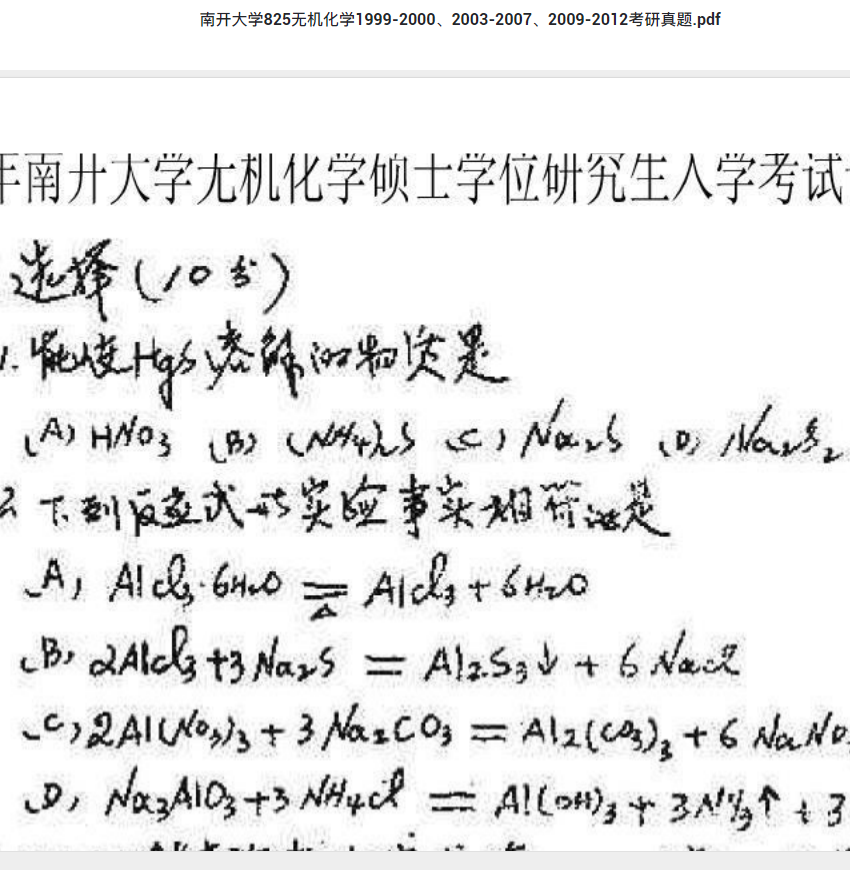 南开大学825无机化学1999-2000、2003-2007、2009-2012考研真题.pdf
年南开大学无机化学硕士学位研究生入学考试
选择(10分)
1. 能使HgS溶解的物质是
(A) HNO3 (B) (NH4)2S (C) Na2S (D) Na2S2
2 下列反应式与实验事实相符的是
(A) AlCl3·6H2O =Δ= AlCl3+6H2O
(B) 2AlCl3+3Na2S = Al2S3↓ + 6NaCl
(C) 2Al(NO3)3 + 3Na2CO3 = Al2(CO3)3 + 6NaNO3
(D) Na3AlO3+3NH4Cl = Al(OH)3 + 3NH3↑ + 3